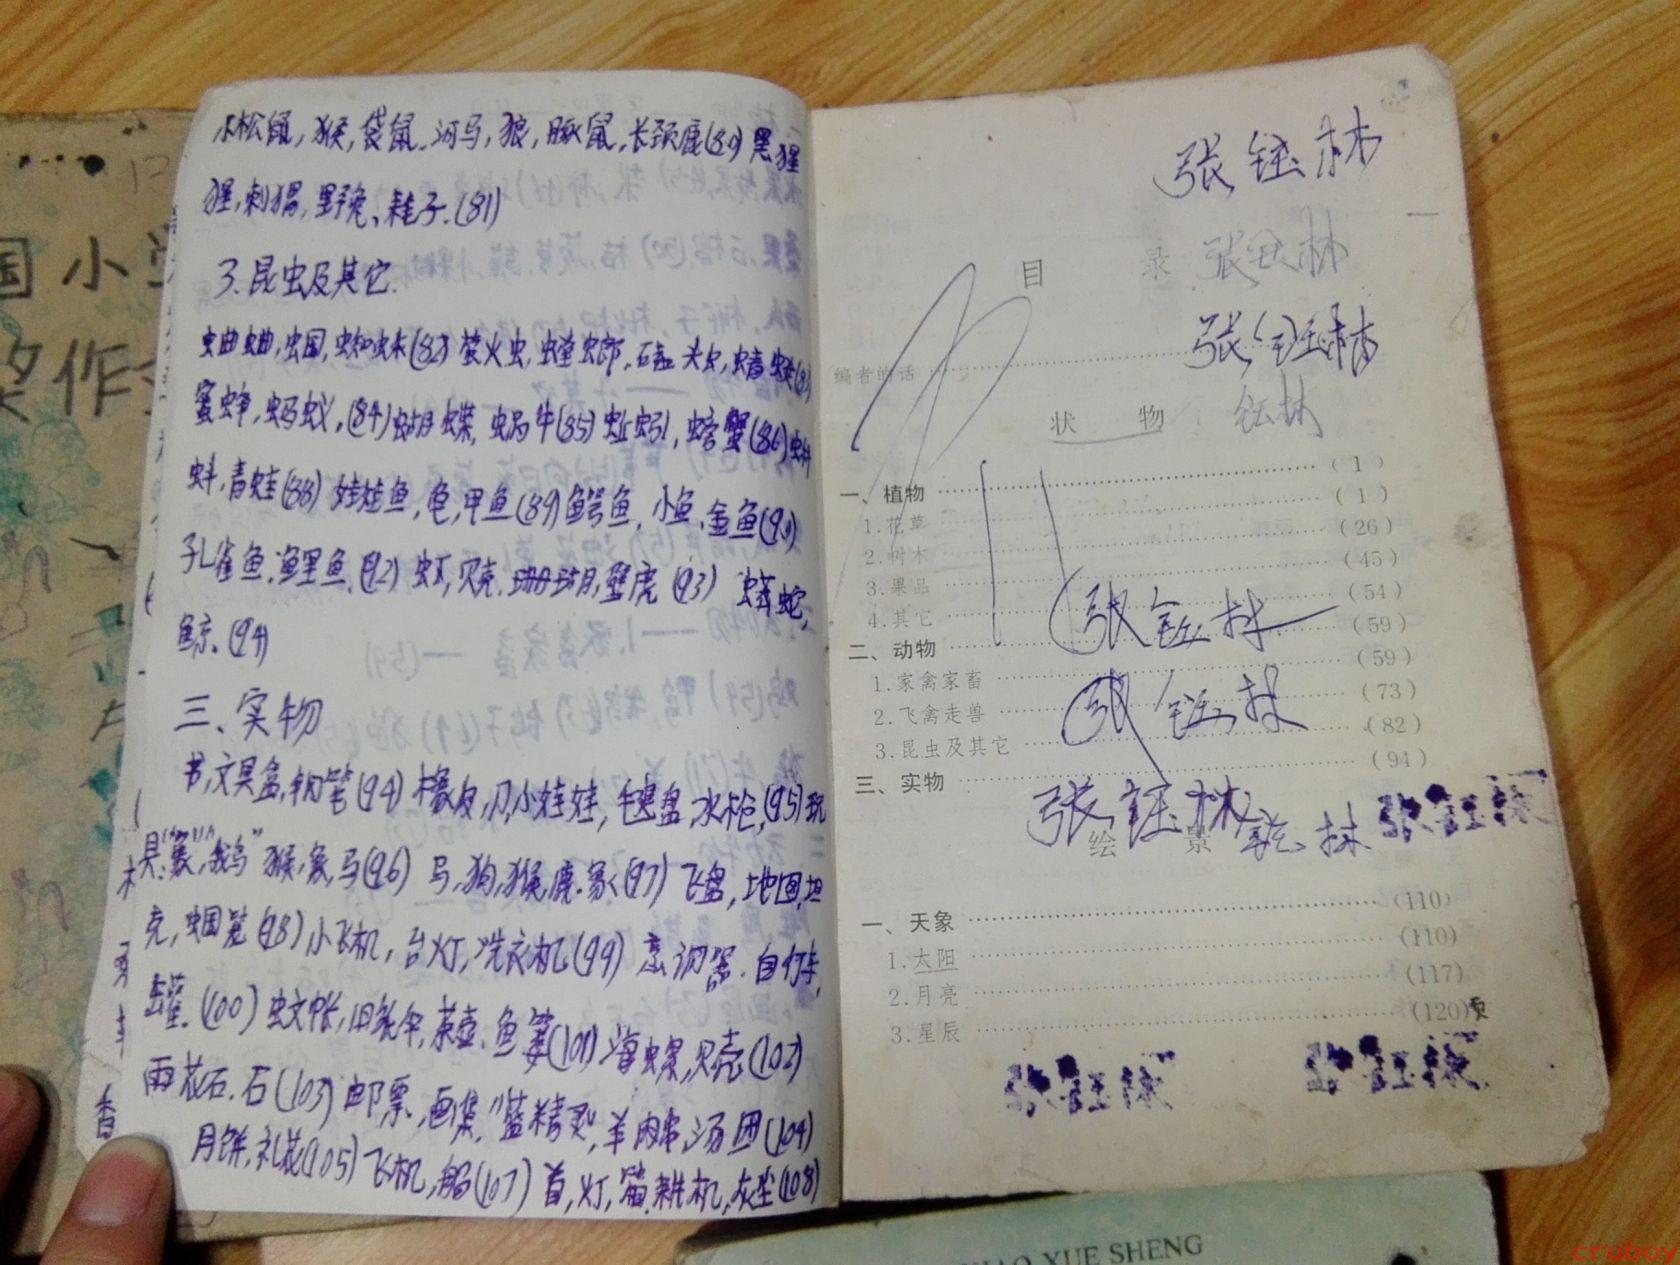 小松鼠，猴，袋鼠.河马，狼，豚鼠，长颈鹿(80)黑猩
猩，刺猬，野兔、耗子.(81)
3.昆虫及其它.
蛐蛐，蝈，蜘蛛(82)萤火虫，螳螂，磕头虫，蜻蜓(83
蜜蜂，蚂蚁，(84)蝴蝶，蜗牛(85)蚯蚓，螃蟹(86)蝌
蚪，青蛙(88)娃娃鱼，龟，甲鱼(89)鳄鱼.小鱼.金鱼(90)
孔雀鱼.鲤鱼.(92)虾，贝壳.珊瑚，壁虎(93)蟒蛇，
鲸.(94)
三.实物
书，文具盒，钢笔(94)橡皮，刀，小娃娃，毽盘，水枪，(95)玩
具:"象"，"鹅"猴，象，马(96)马，狗，猴，鹿.象(97)飞盘，地图，坦
克，蝈笼(98)小飞机，台灯，洗衣机(99)烹调器.自行车，
罐.(100)蚊帐，旧纸伞，茶壶.鱼篓(101)海螺，贝壳(102)
雨花石.石(103)邮票，画集，"蓝精灵"，羊肉串，汤团(104)
月饼，礼花(105)飞机，船(107)首，灯，耕机，灰尘(108)
国小学
奖作文
张钰林
目 录 张钰林
张钰林
编者的话
状 物 钰林
一、植物 (1)
1.花草 (1)
2.树木 (26)
3.果品 (45)
4.其它 (54)
张钰林
二、动物 (59)
1.家禽家畜 (59)
2.飞禽走兽 (73)
张钰林
3.昆虫及其它 (82)
三、实物 (94)
张钰林
张钰林
绘 景 钰林
一、天象 (110)
1.太阳 (110)
2.月亮 (117)
3.星辰 (120)页
张钰林
张钰林
XIAO XUE SHENG
cruboy